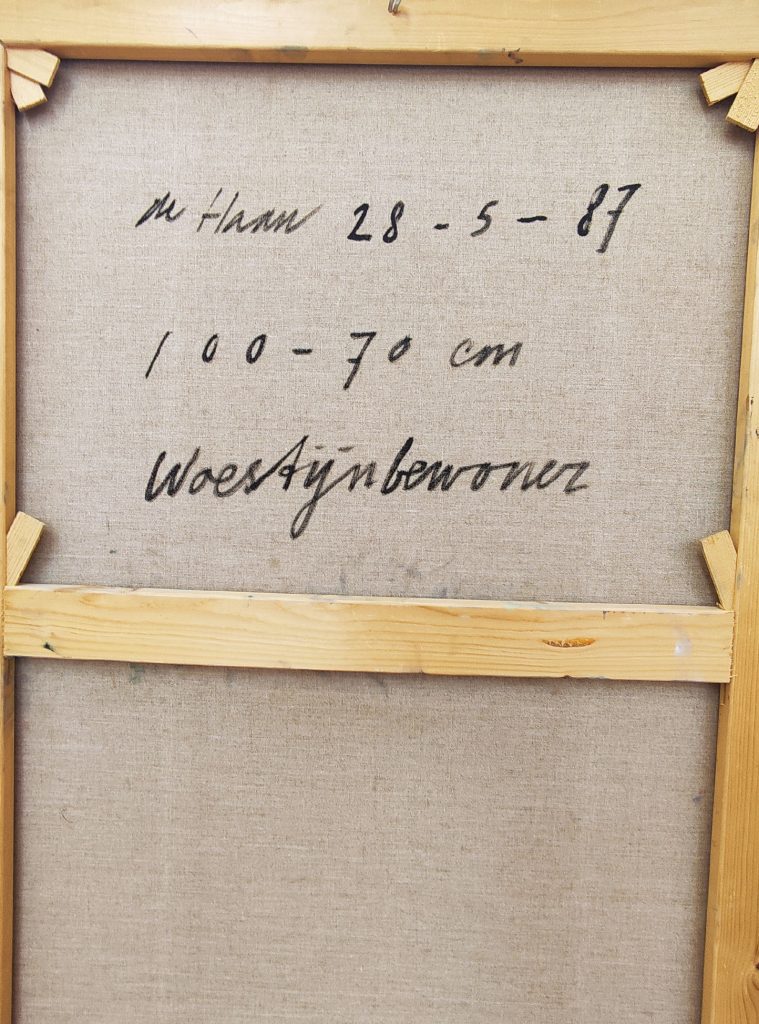 de Haan 28 - 5 - 87
100 - 70 cm
Woestijnbewoner